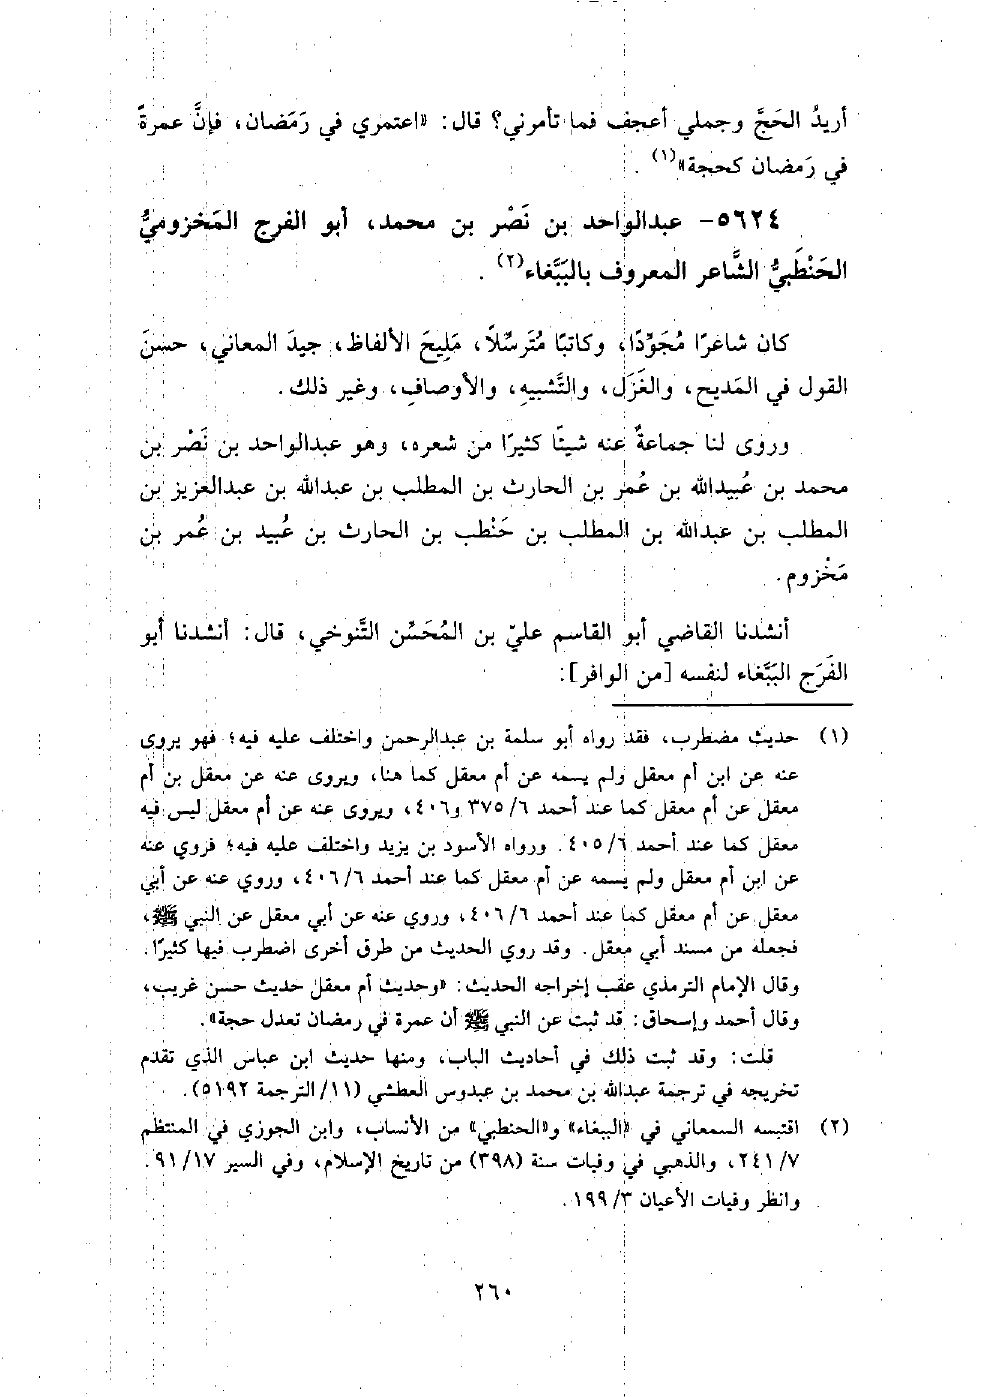 أريدُ الحَجَّ وجملي أعجف فما تأمرني؟ قال: «اعتمري في رَمَضان، فإنَّ عمرةً
في رَمضان كحجة»(١).
٥٦٢٤- عبدالواحد بن نَصْر بن محمد، أبو الفرج المَخزوميُّ
الحَنْطَبيُّ الشَّاعر المعروف بالبَبَّغاء(٢).
كان شاعرًا مُجَوِّدًا، وكاتبًا مُتَرسِّلًا، مَلِيحَ الألفاظ، جيدَ المعاني، حسَنَ
القول في المَديح، والغَزَل، والتَّشبيهِ، والأوصافِ، وغير ذلك.
وروى لنا جماعةٌ عنه شيئًا كثيرًا من شعره، وهو عبدالواحد بن نَصْر بن
محمد بن عُبيدالله بن عُمر بن الحارث بن المطلب بن عبدالله بن عبدالعزيز بن
المطلب بن عبدالله بن المطلب بن حَنْطب بن الحارث بن عُبيد بن عُمر بن
مَخْزوم.
أنشدنا القاضي أبو القاسم عليّ بن المُحَسِّن التَّنوخي، قال: أنشدنا أبو
الفَرَج البَبَّغاء لنفسه [من الوافر]:
(١) حديث مضطرب، فقد رواه أبو سلمة بن عبدالرحمن واختلف عليه فيه؛ فهو يروى
عنه عن ابن أم معقل ولم يسمه عن أم معقل كما هنا، ويروى عنه عن معقل بن أم
معقل عن أم معقل كما عند أحمد ٦/ ٣٧٥ و٤٠٦، ويروى عنه عن أم معقل ليس فيه
معقل كما عند أحمد ٦/ ٤٠٥. ورواه الأسود بن يزيد واختلف عليه فيه؛ فروي عنه
عن ابن أم معقل ولم يسمه عن أم معقل كما عند أحمد ٦/ ٤٠٦، وروي عنه عن أبي
معقل عن أم معقل كما عند أحمد ٦/ ٤٠٦، وروي عنه عن أبي معقل عن النبي ﷺ،
فجعله من مسند أبي معقل. وقد روي الحديث من طرق أخرى اضطرب فيها كثيرًا.
وقال الإمام الترمذي عقب إخراجه الحديث: «وحديث أم معقل حديث حسن غريب،
وقال أحمد وإسحاق: قد ثبت عن النبي ﷺ أن عمرة في رمضان تعدل حجة».
قلت: وقد ثبت ذلك في أحاديث الباب، ومنها حديث ابن عباس الذي تقدم
تخريجه في ترجمة عبدالله بن محمد بن عبدوس العطشي (١١/ الترجمة ٥١٩٢).
(٢) اقتبسه السمعاني في «الببغاء» و«الحنطبي» من الأنساب، وابن الجوزي في المنتظم
٧/ ٢٤١، والذهبي في وفيات سنة (٣٩٨) من تاريخ الإسلام، وفي السير ١٧/ ٩١.
وانظر وفيات الأعيان ٣/ ١٩٩.
٢٦٠